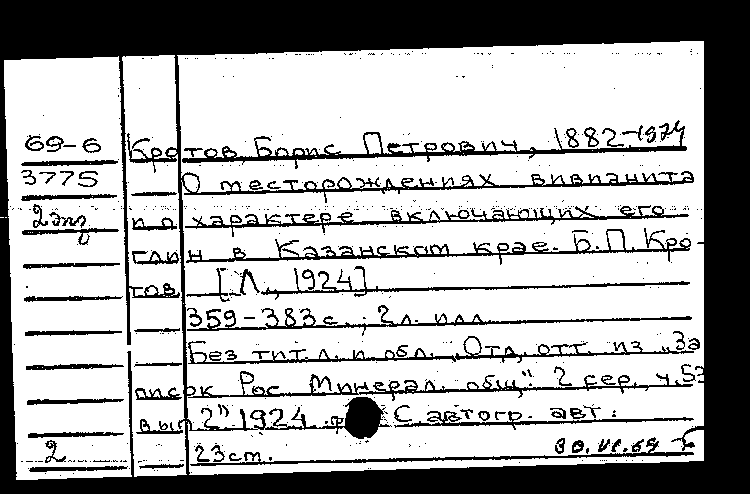 69-6 Кротов, Борис Петрович, 1882-1974
3775 О месторождениях вивианита
2 экз и о характере включающих его
глин в Казанском крае. Б.П. Кро-
тов. [Л., 1924]
359-383 с., 2 л. илл.
Без тит. л. и обл. Отд. отт. из „За
писок Рос. Минерал. общ." 2 сер., ч. 53
вып 2" 1924 С автогр. авт.
2 23 ст. 30.VI.69